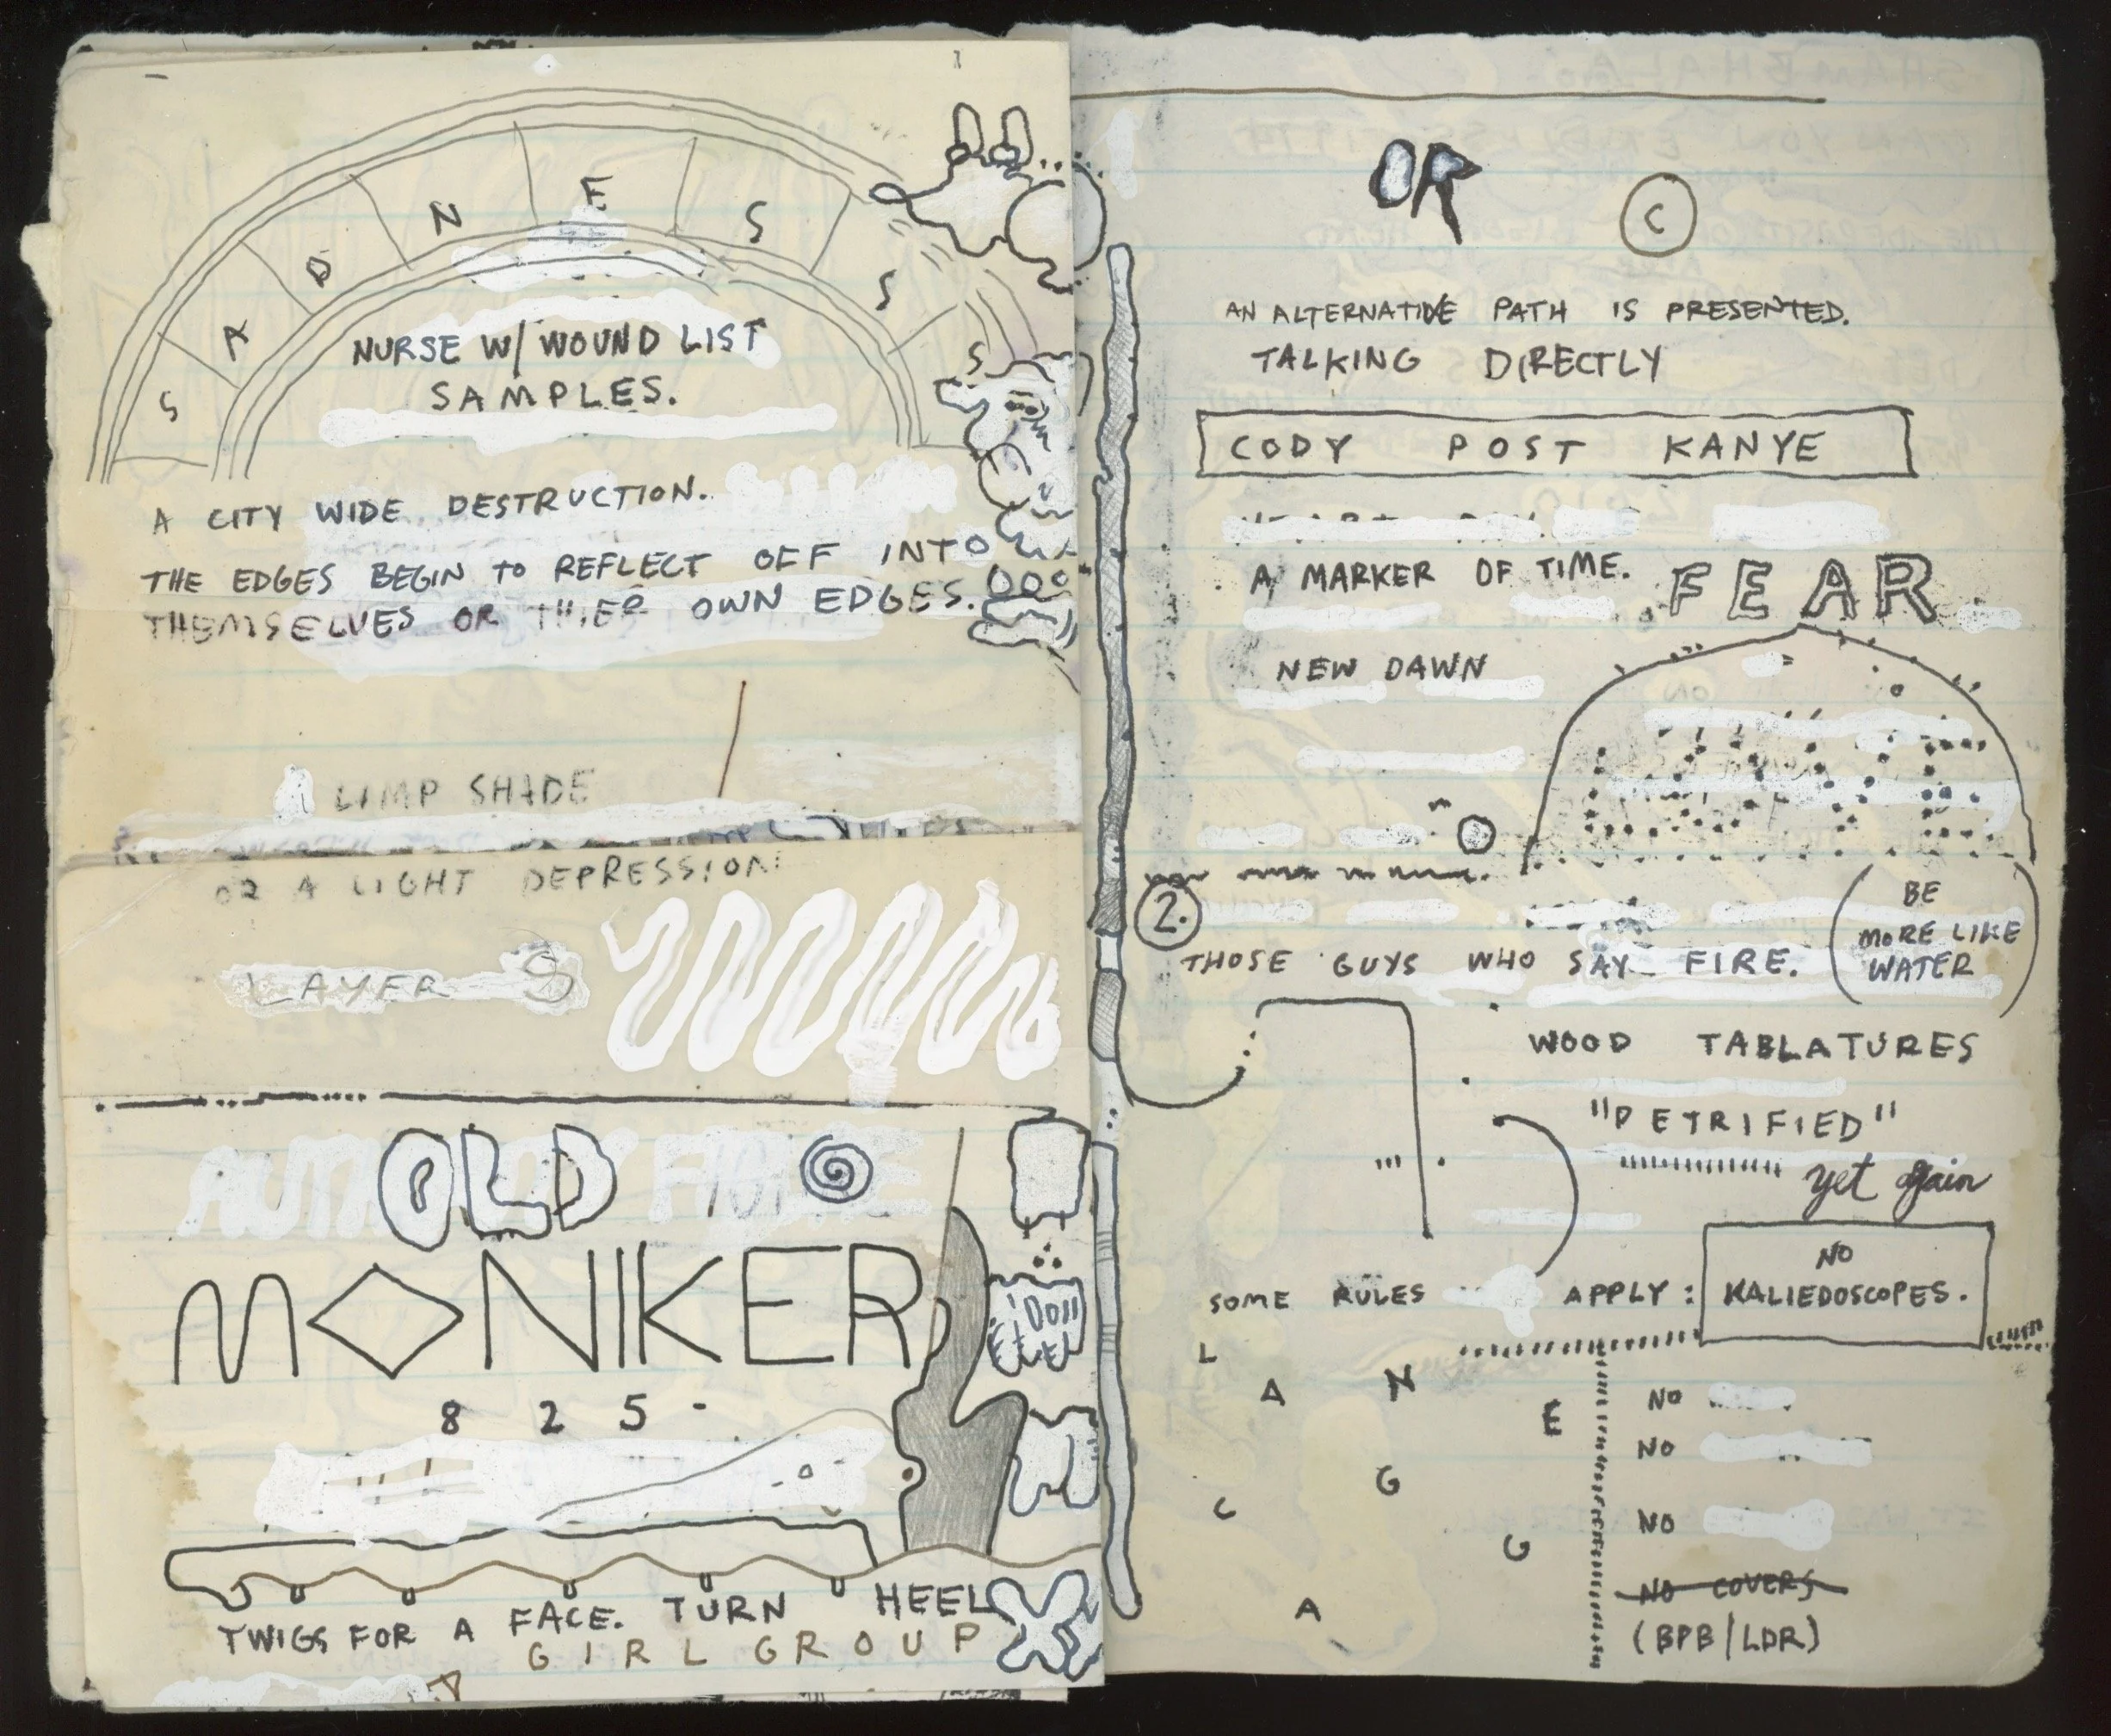 SADNESSS
NURSE W/ WOUND LIST
SAMPLES.
A CITY WIDE DESTRUCTION.
THE EDGES BEGIN TO REFLECT OFF INTO
THEMSELVES OR THIER OWN EDGES.
LIMP SHADE
OR A LIGHT DEPRESSION
LAYER
OLD
MONIKER
825-
TWIGS FOR A FACE. TURN HEEL
GIRL GROUP
OR
C
AN ALTERNATIVE PATH IS PRESENTED.
TALKING DIRECTLY
CODY POST KANYE
A MARKER OF TIME.
FEAR
NEW DAWN
2.
THOSE GUYS WHO SAY FIRE.
(BE
MORE LIKE
WATER)
WOOD TABLATURES
"PETRIFIED"
yet again
SOME RULES APPLY:
NO
KALIEDOSCOPES.
L
A N
E
G
C
G
A
NO
NO
NO
NO COVERS
(BPB/LDR)